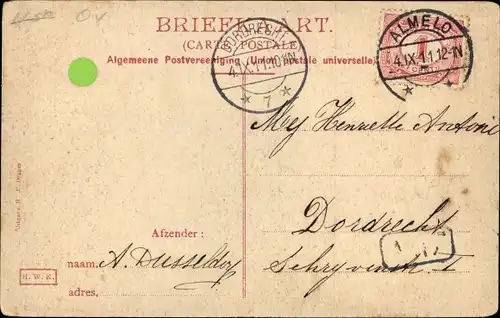 BRIEFKAART.
(CARTE POSTALE)
Algemeene Postvereeniging (Union postale universelle).
DORDRECHT
4.IX.11.10
7
ALMELO
4.IX.11.12-1N
1
Mej Henriette Antoni
Dordrecht
Afzender :
naam. A. Dusseldorp
adres,
H. W. E.